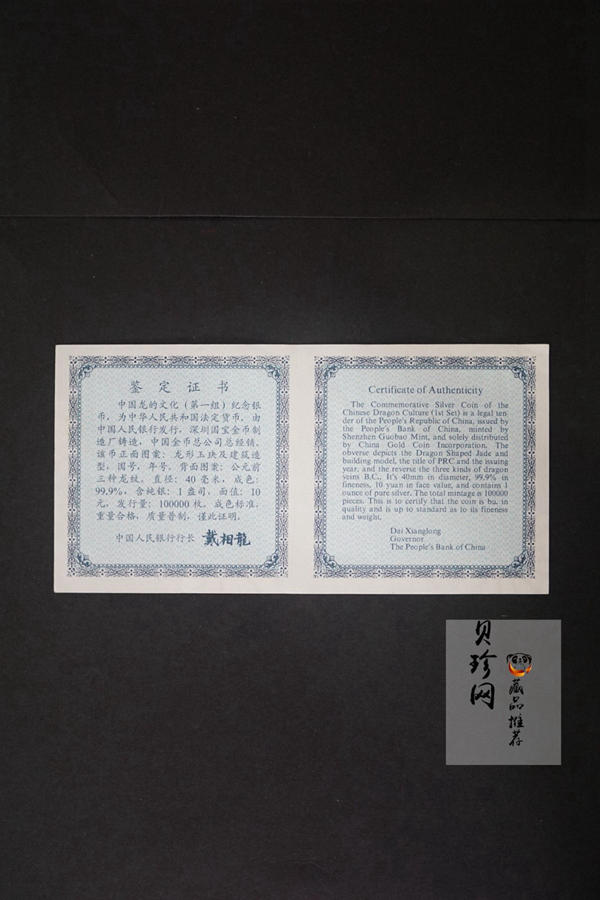 鉴定证书
中国龙的文化(第一组)纪念银
币,为中华人民共和国法定货币,由
中国人民银行发行,深圳国宝金币制
造厂铸造,中国金币总公司总经销。
该币正面图案:龙形玉玦及建筑造
型,国号,年号。背面图案:公元前
三种龙纹。直径:40毫米,成色:
99.9%,含纯银:1盎司,面值:10
元,发行量:100000枚。成色标准,
重量合格,质量普制,谨此证明。
中国人民银行行长 戴相龍
Certificate of Authenticity
The Commemorative Silver Coin of the
Chinese Dragon Culture (1st Set) is a legal ten-
der of the People's Republic of China, issued by
the People's Bank of China, minted by
Shenzhen Guobao Mint, and solely distributed
by China Gold Coin Incorporation. The
obverse depicts the Dragon Shaped Jade and
building model, the title of PRC and the issuing
year, and the reverse the three kinds of dragon
veins B.C., It's 40mm in diameter, 99.9% in
fineness, 10 yuan in face value, and contains 1
ounce of pure silver. The total mintage is 100000
pieces. This is to certify that the coin is bu. in
quality and is up to standard as to its fineness
and weight.
Dai Xianglong
Governor
The People's Bank of China
贝珍网
藏品推荐